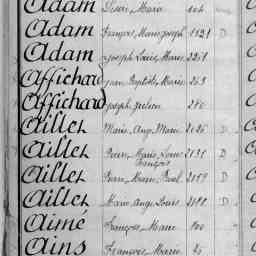 Adam Marie 104
Adam François, Marie Joseph 1121 D
Adam Joseph Louis Marie 2251
Affichard Jean Baptiste Marie 263
Affichard Joseph Julien 210
Aillet Marie Ange Marie D
Aillet Pierre, Marie, Louis 2131 D
François
Aillet Pierre, Marie, Paul 2159 D
Aillet Marie Ange Louis D
Aimé François, Marie 100
Ains François, Marie